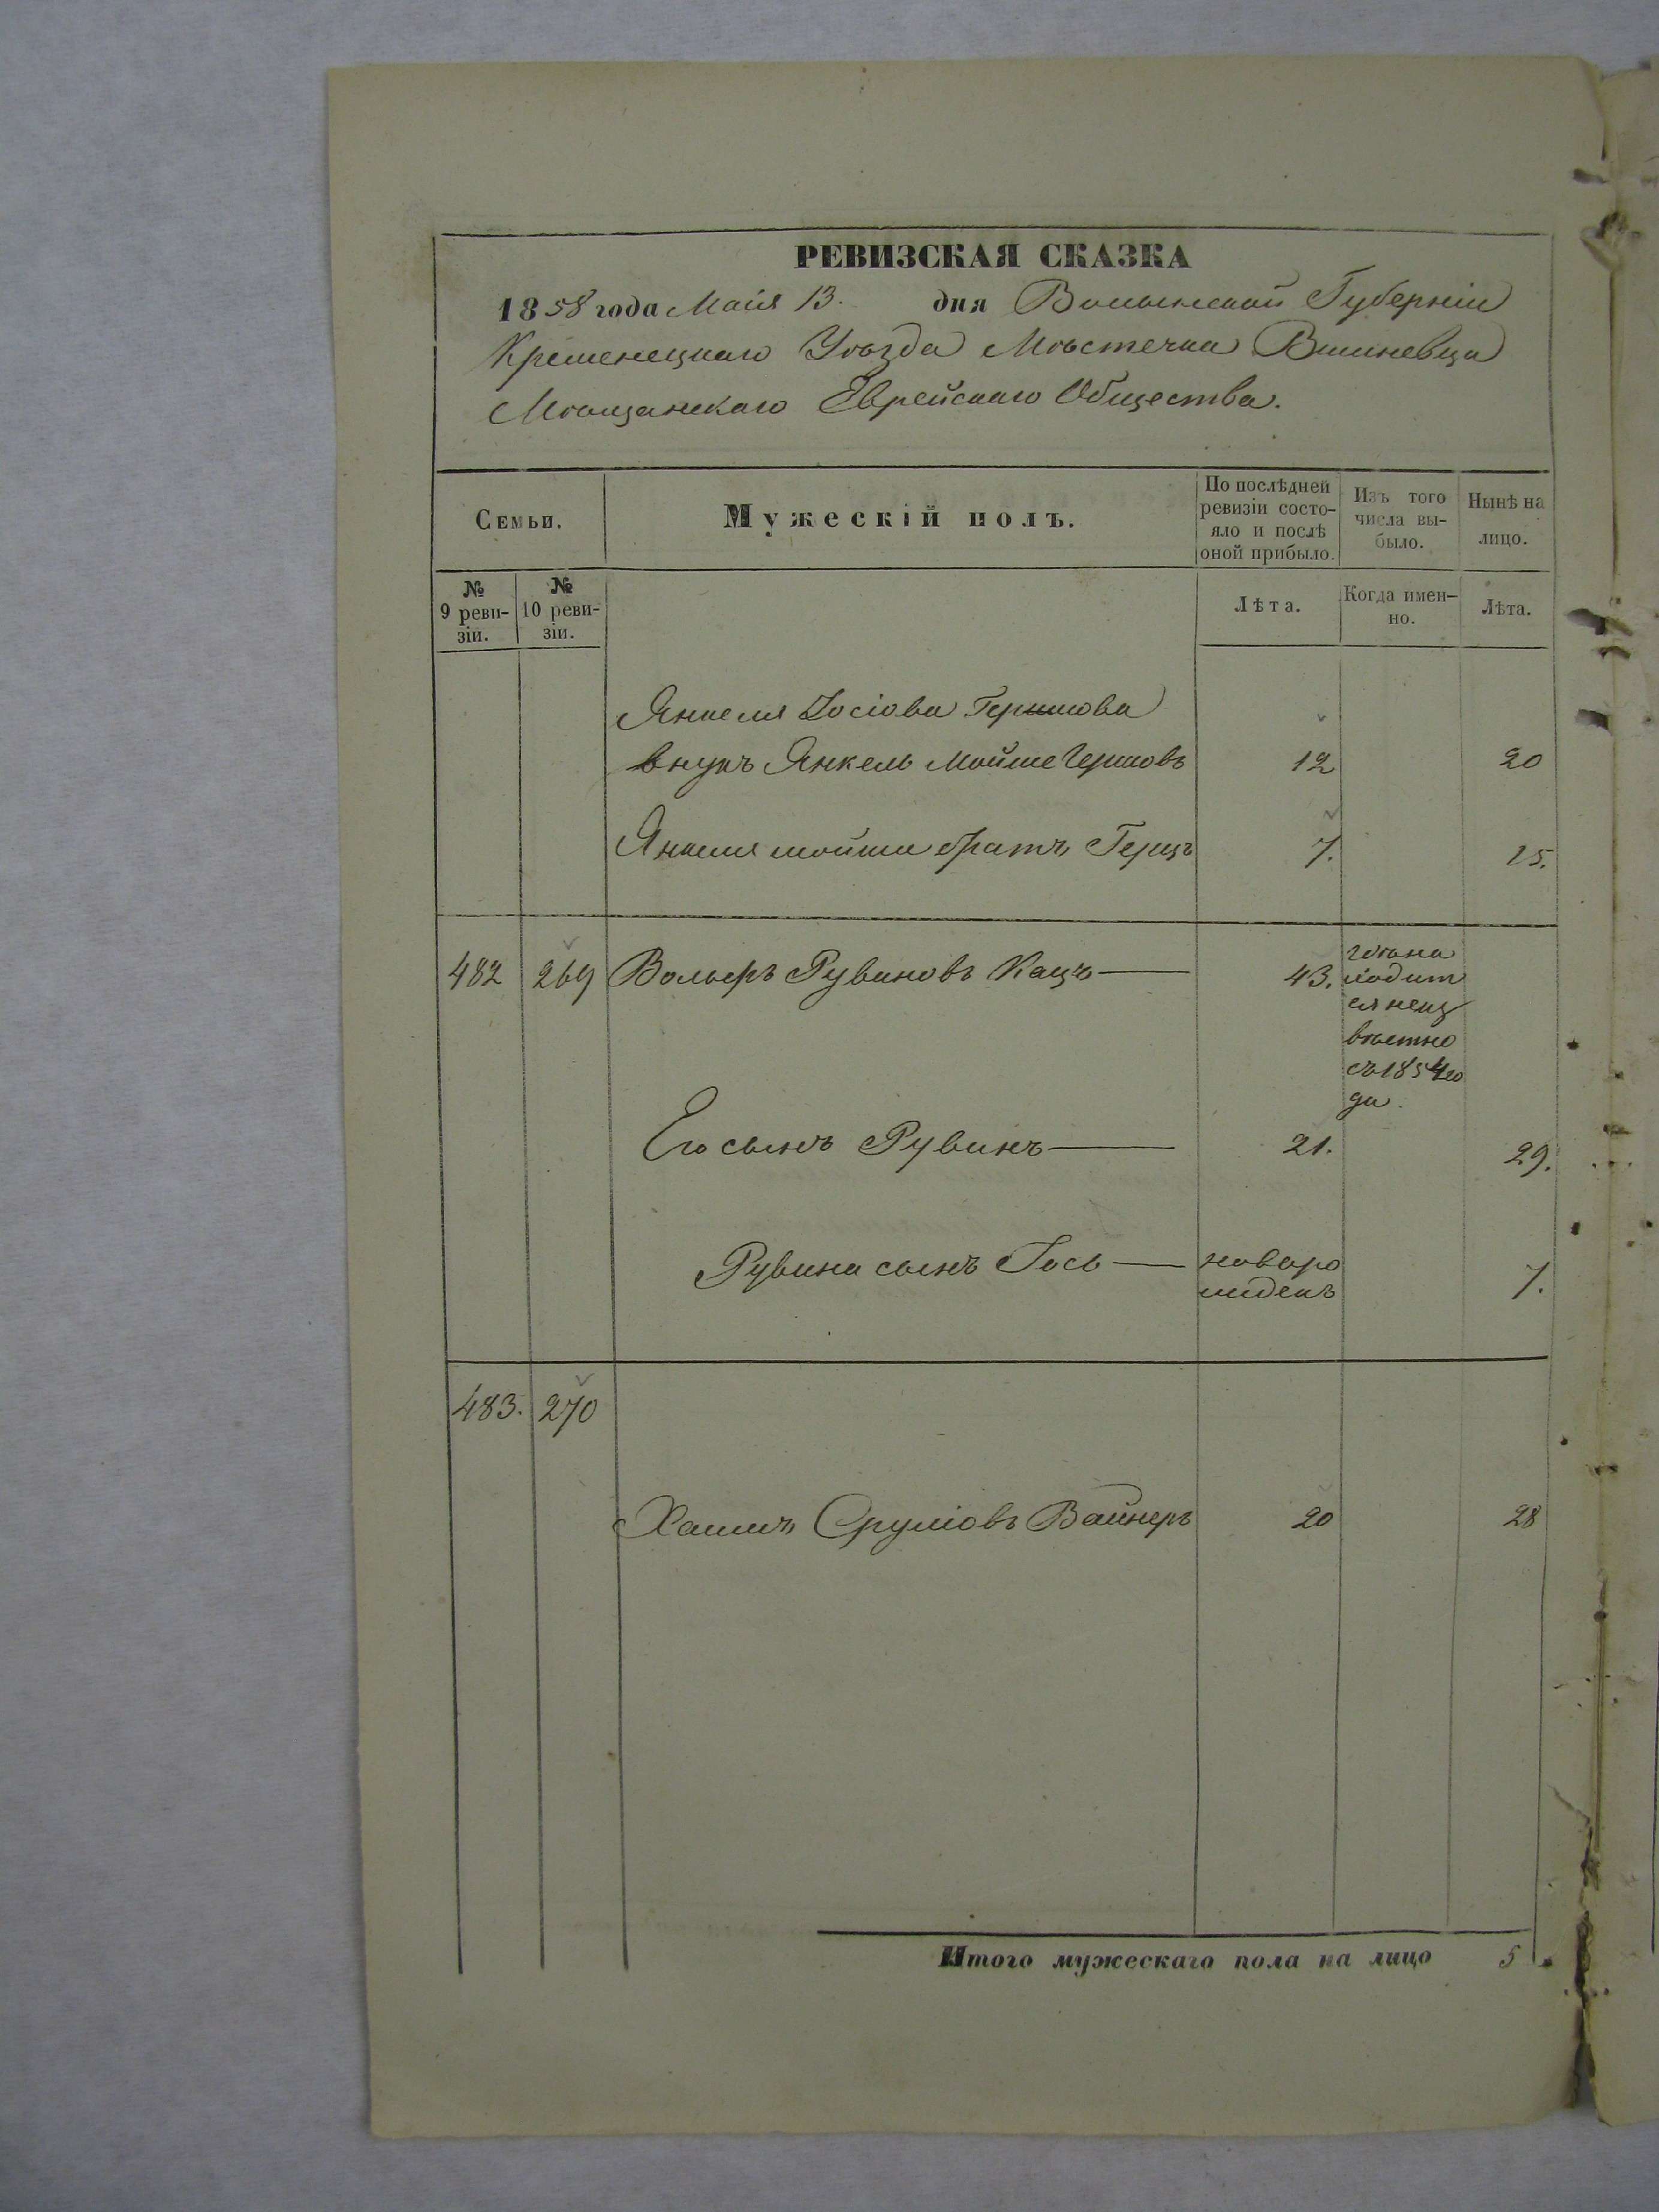 РЕВИЗСКАЯ СКАЗКА
1858 года Маія 13. дня Волынской Губерніи
Кременецкаго Уѣзда Мѣстечка Вишневца
Мѣщанскаго Еврейскаго Общества.
Семьи.
Мужескій полъ.
По послѣдней ревизіи состо-
яло и послѣ оной прибыло.
Изъ того числа вы-
было.
Нынѣ на лицо.
№ 9 реви-
зіи.
№ 10 реви-
зіи.
Лѣта.
Когда имен-
но.
Лѣта.
Янкеля Іосіова Гершкова
внукъ Янкель Мойше Гершовъ 12 20
Янкеля мойши братъ Герцъ 7. 15.
482 269 Вольфъ Рувиновъ Кацъ 43.
гдѣ на
ходит
ся неиз
вѣстно
съ 1854 го
да.
Его сынъ Рувинъ 21. 29.
Рувина сынъ Іось новоро
жденъ 7.
483. 270
Хаимъ Сруліовъ Вайнеръ 20 28
Итого мужескаго пола на лицо 5